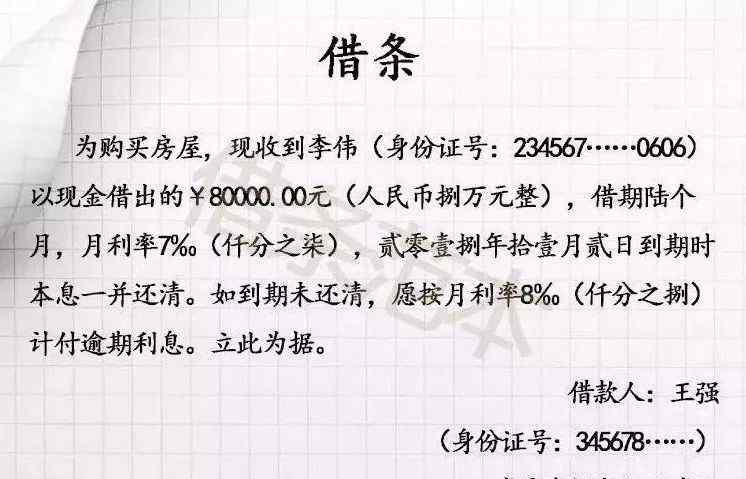 借条
为购买房屋，现收到李伟（身份证号：234567……0606）
以现金借出的￥80000.00元（人民币捌万元整），借期陆个
月，月利率7‰（仟分之柒），贰零壹捌年拾壹月贰日到期时
本息一并还清。如到期未还清，愿按月利率8‰（仟分之捌）
计付逾期利息。立此为据。
借款人：王强
（身份证号：345678……）
借条范本